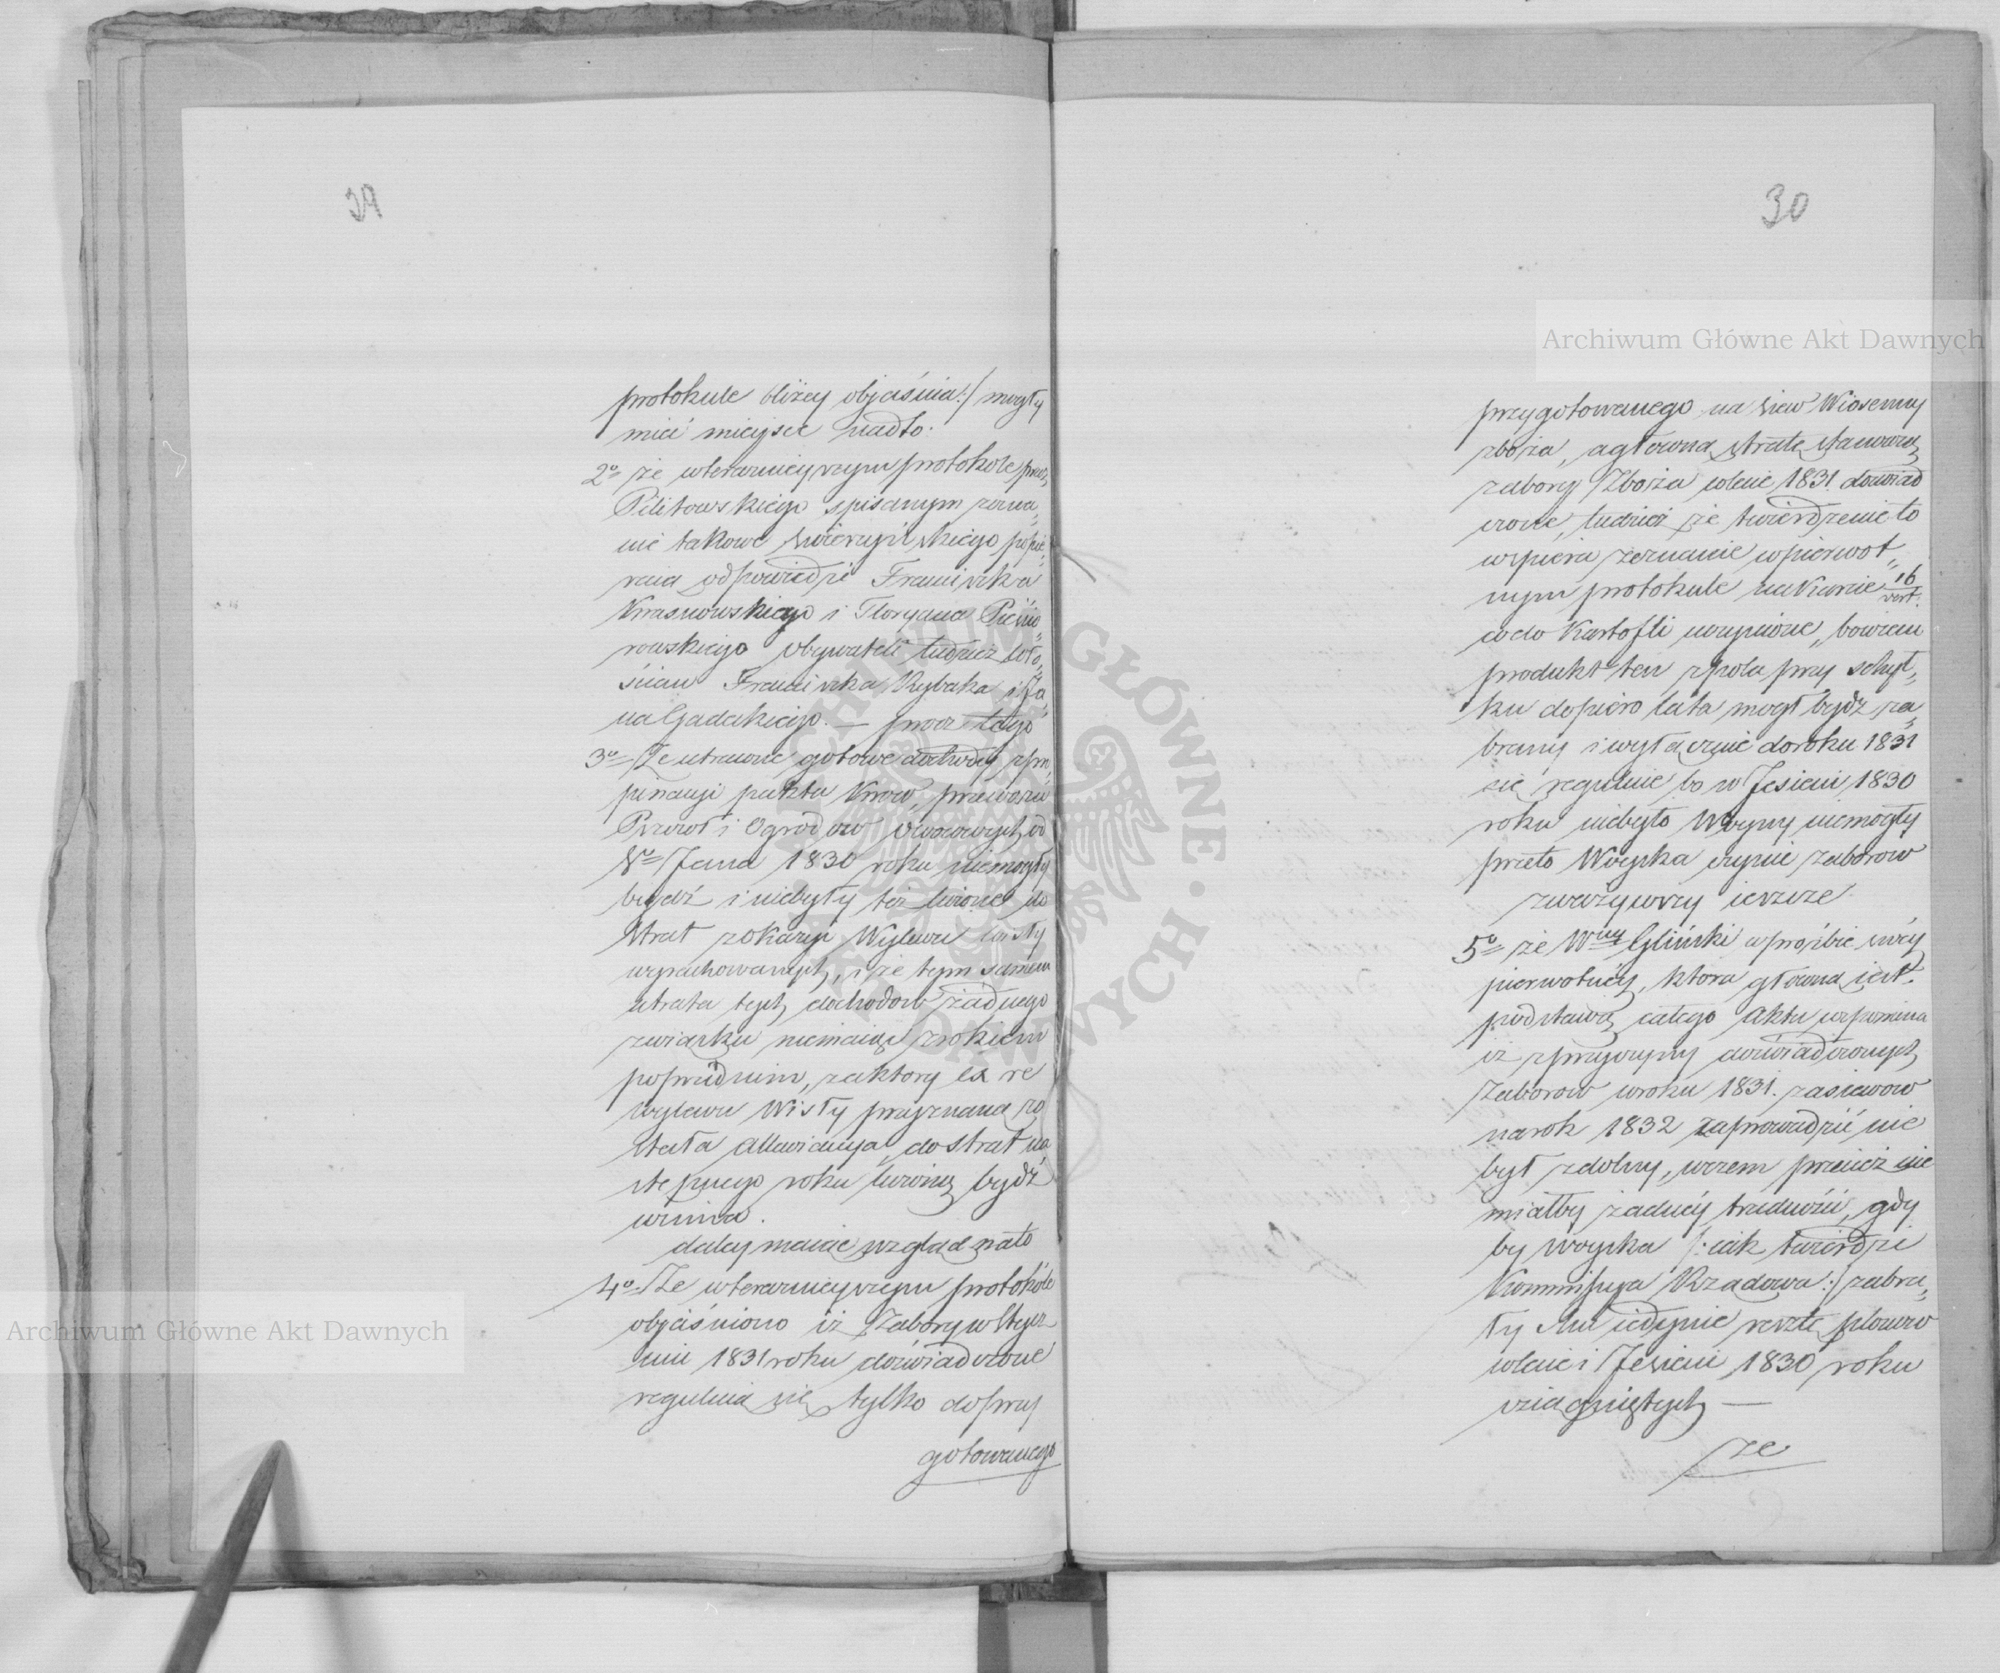 29
protokule bliżey objaśnia:/ mogły
mieć mieysce nadto.
2o że wterazнieyszym protokole przez
Pilitowskiego spisanym zezna„
nie takowe popie„
raią odpowiedzi Franciszka
Krasnowskiego i Floryana
rowskiego obywateli tudzież wło„
ścian Franciszka Rybaka i Ja„
na Gadackiego. — procz tego
3o Że utracone gotowe dochody zpro„
pinacyi paktu Krow, przewozu
Przewoz i Ogrodow owocowych od
So Jana 1830 roku niemogły
bydź i niebyły też liczone do
strat zokazyi Wylewu wisły
wyrachowanych, i że tym samem
utrata tych dochodow żadnego
związku niemaiąc zrokiem
poprzednim, zaktory ex re
wylewu Wisły przyznaną zo
stała allewiacya, do strat na
stępnego roku liczoną bydź
winna.
daley maiąc wzgląd nato
4o Że wterazнieyszym protokóle
objaśniono iż Zabory w Stycz
niu 1831 roku doświadczone
regulują się tylko do przy
gotowanego
30
przygotowanego na siew Wiosenny
zboża, a główną stratę stanowią
zabory Zboża wlecie 1831 doświad
czone, tudzież że twierdzenie to
wspiera zeznanie wpierwot„
nym protokule na Karcie 16 vert.
co do Kartofli uczynione, bowiem
produkt ten zpola przy schył„
ku dopiero lata mogł bydź za„
brany i wyłącznie do roku 1831
się reguluie bo w Jesieni 1830
roku niebyło Woyny niemogły
przeto Woyska czynić zaborow
zważywszy ieszcze
5o że Wny Gliński wprośbie swey
pierwotney, ktora główną iest
podstawą całego Aktu wspomina
iż zprzyczyny doświadczonych
Zaborow wroku 1831. zasiewow
na rok 1832 zaprowadzić nie
był zdolny, wczem przecież nie
miałby żadney trudności, gdy
by woyska /:iak twierdzi
Kommissya Rządowa:/ zabra„
ły Mu iedynie resztę plonow
wlecie i Jesieni 1830 roku
sciągniętych —
że
Archiwum Główne Akt Dawnych
Archiwum Główne Akt Dawnych
ARCHIWUM GŁÓWNE · AKT DAWNYCH ·